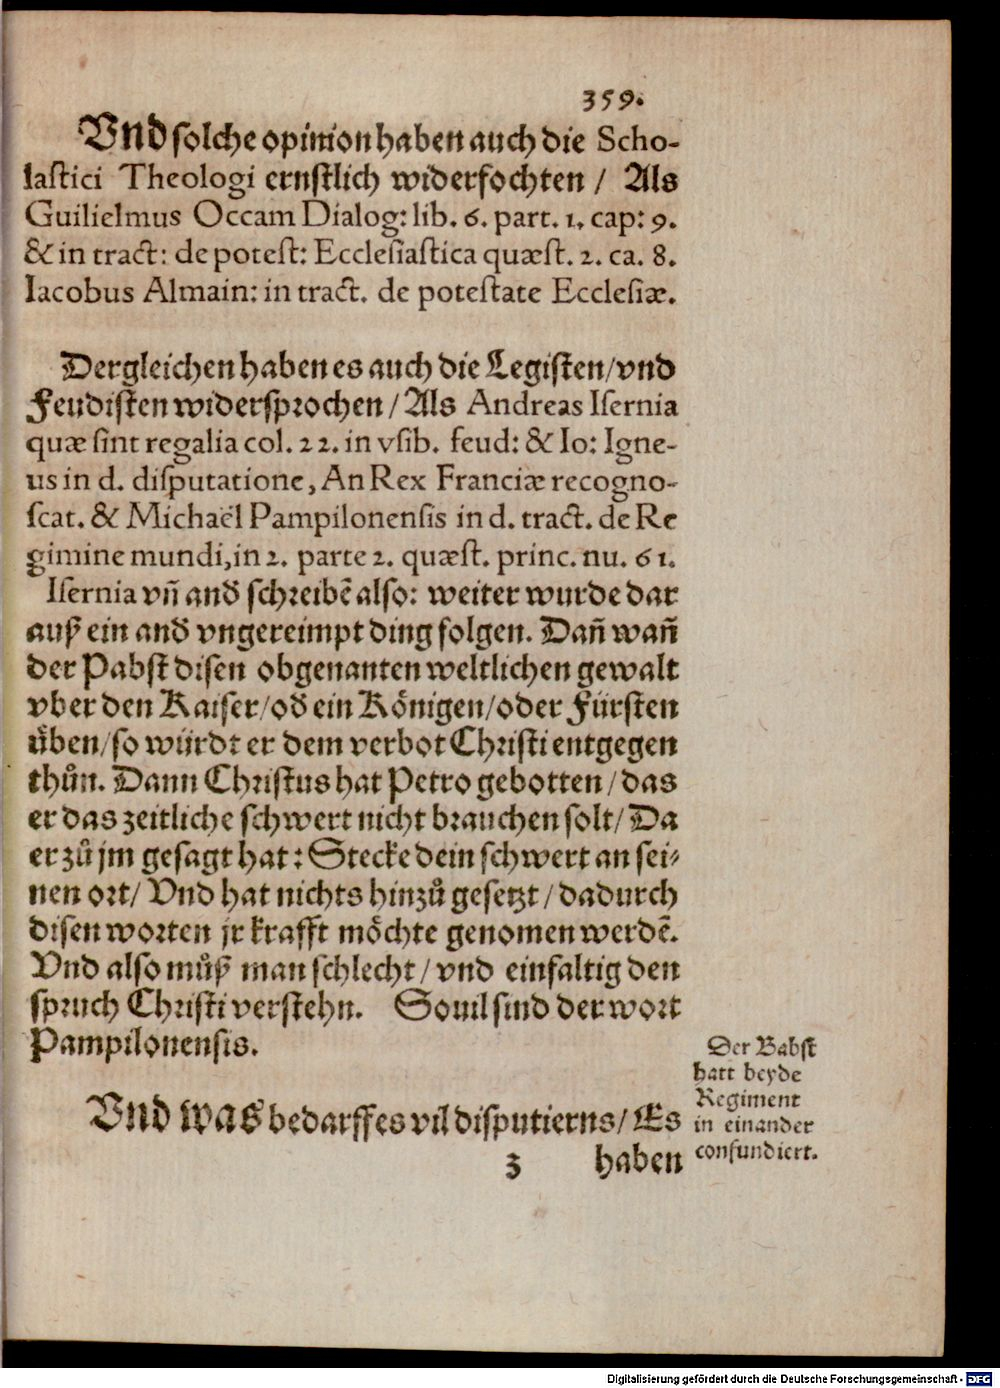 359.
Vnd solche opinion haben auch die Scho-
lastici Theologi ernstlich widerfochten / Als
Guilielmus Occam Dialog: lib. 6. part. 1. cap: 9.
& in tract: de potest: Ecclesiastica quæst. 2. ca. 8.
Iacobus Almain: in tract. de potestate Ecclesiæ.
Dergleichen haben es auch die Legisten/vnd
Feudisten widersprochen / Als Andreas Isernia
quæ sint regalia col. 22. in vsib. feud: & Io: Igne-
us in d. disputatione, An Rex Franciæ recogno-
scat. & Michaël Pampilonensis in d. tract. de Re
gimine mundi, in 2. parte 2. quæst. princ. nu. 61.
Isernia vñ and̃ schreibẽ also: weiter wurde dar
auß ein and̃ vngereimpt ding folgen. Dañ wañ
der Pabst disen obgenanten weltlichen gewalt
vber den Kaiser/od̃ ein Königen/oder Fürsten
üben/so würdt er dem verbot Christi entgegen
thůn. Dann Christus hat Petro gebotten / das
er das zeitliche schwert nicht brauchen solt/ Da
er zů jm gesagt hat: Stecke dein schwert an sei-
nen ort/ Vnd hat nichts hinzů gesetzt / dadurch
disen worten jr krafft möchte genomen werdẽ.
Vnd also můß man schlecht / vnd einfaltig den
spruch Christi verstehn. Souil sind der wort
Pampilonensis.
Der Babst
hatt beyde
Regiment
in einander
confundiert.
Vnd was bedarff es vil disputierns/ Es
z haben
Digitalisierung gefördert durch die Deutsche Forschungsgemeinschaft - DFG